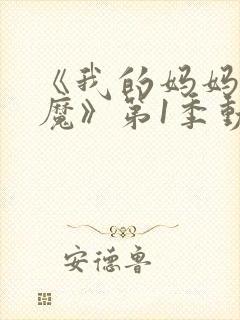 《我的妈妈
魔》第1季動
安德鲁